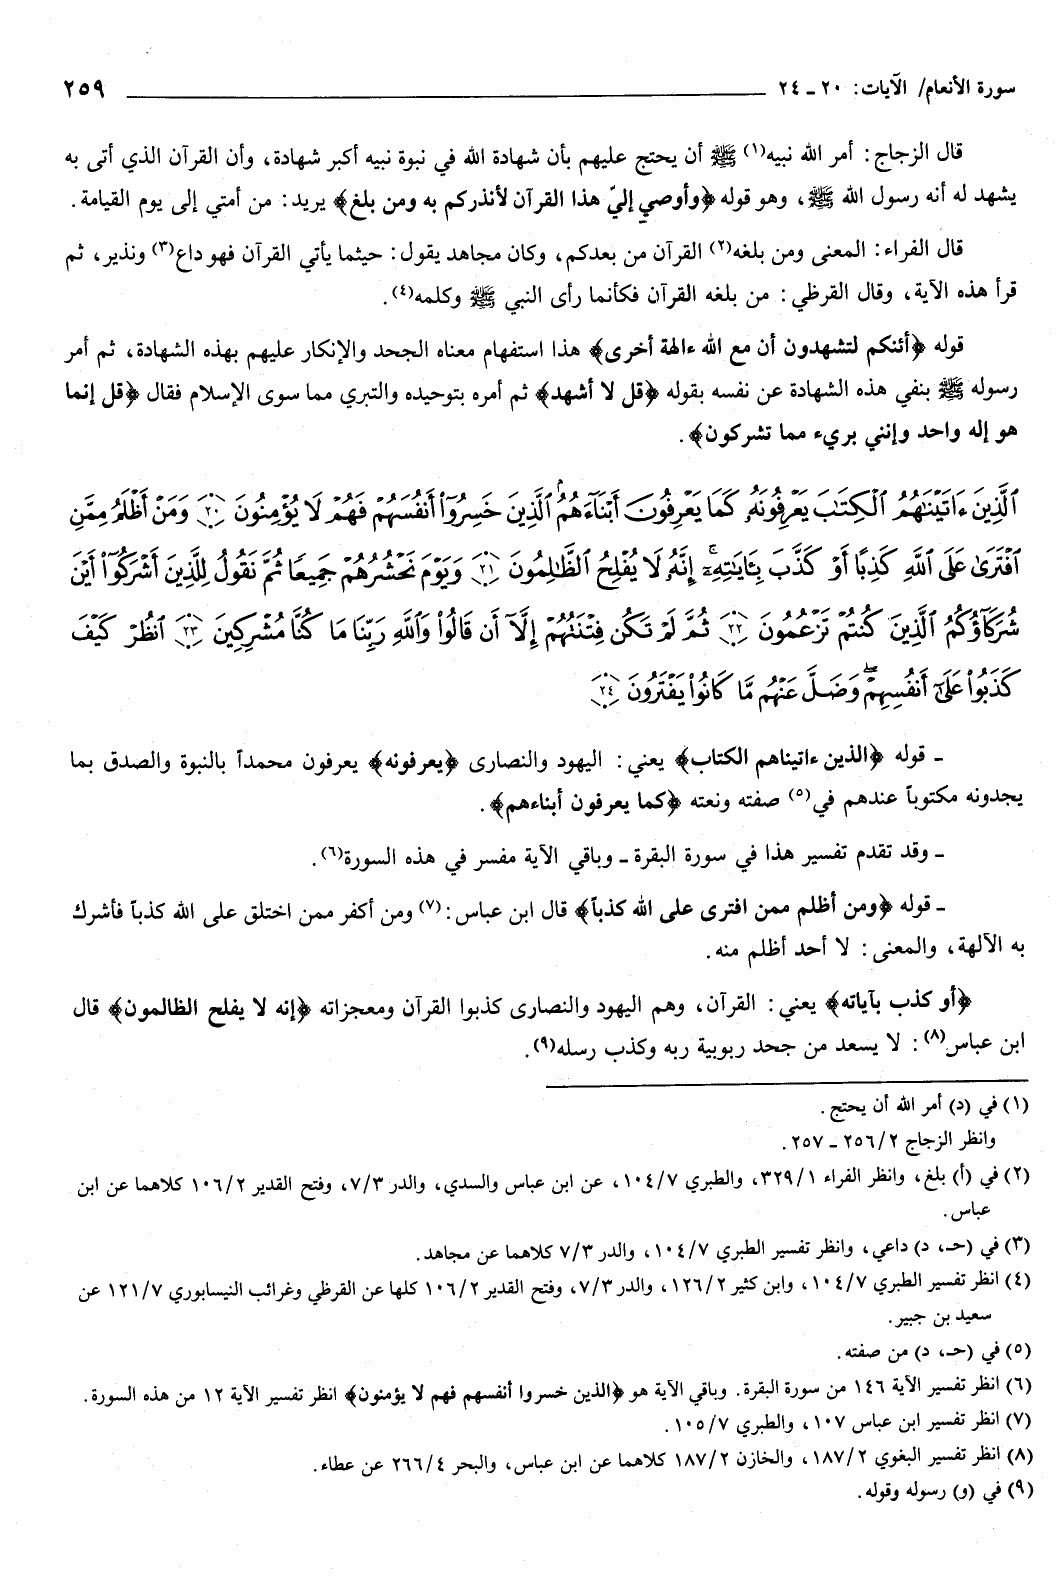 سورة الأنعام/ الآيات: ٢٠ ـ ٢٤ ٢٥٩
قال الزجاج: أمر الله نبيه(١) ﷺ أن يحتج عليهم بأن شهادة الله في نبوة نبيه أكبر شهادة، وأن القرآن الذي أتى به
يشهد له أنه رسول الله ﷺ، وهو قوله ﴿وأوصي إليّ هذا القرآن لأنذركم به ومن بلغ﴾ يريد: من أمتي إلى يوم القيامة.
قال الفراء: المعنى ومن بلغه(٢) القرآن من بعدكم، وكان مجاهد يقول: حيثما يأتي القرآن فهو داع(٣) ونذير، ثم
قرأ هذه الآية، وقال القرظي: من بلغه القرآن فكأنما رأى النبي ﷺ وكلمه(٤).
قوله ﴿أئنكم لتشهدون أن مع الله ءالهة أخرى﴾ هذا استفهام معناه الجحد والإنكار عليهم بهذه الشهادة، ثم أمر
رسوله ﷺ بنفي هذه الشهادة عن نفسه بقوله ﴿قل لا أشهد﴾ ثم أمره بتوحيده والتبري مما سوى الإسلام فقال ﴿قل إنما
هو إله واحد وإنني بريء مما تشركون﴾.
ٱلَّذِينَ ءَاتَيْنَٰهُمُ ٱلْكِتَٰبَ يَعْرِفُونَهُۥ كَمَا يَعْرِفُونَ أَبْنَآءَهُمُ ٱلَّذِينَ خَسِرُوٓا۟ أَنفُسَهُمْ فَهُمْ لَا يُؤْمِنُونَ ﴿٢٠﴾ وَمَنْ أَظْلَمُ مِمَّنِ
ٱفْتَرَىٰ عَلَى ٱللَّهِ كَذِبًا أَوْ كَذَّبَ بِـَٔايَٰتِهِۦٓ ۚ إِنَّهُۥ لَا يُفْلِحُ ٱلظَّٰلِمُونَ ﴿٢١﴾ وَيَوْمَ نَحْشُرُهُمْ جَمِيعًا ثُمَّ نَقُولُ لِلَّذِينَ أَشْرَكُوٓا۟ أَيْنَ
شُرَكَآؤُكُمُ ٱلَّذِينَ كُنتُمْ تَزْعُمُونَ ﴿٢٢﴾ ثُمَّ لَمْ تَكُن فِتْنَتُهُمْ إِلَّآ أَن قَالُوا۟ وَٱللَّهِ رَبِّنَا مَا كُنَّا مُشْرِكِينَ ﴿٢٣﴾ ٱنظُرْ كَيْفَ
كَذَبُوا۟ عَلَىٰٓ أَنفُسِهِمْ ۖ وَضَلَّ عَنْهُم مَّا كَانُوا۟ يَفْتَرُونَ ﴿٢٤﴾
ـ قوله ﴿الذين ءاتيناهم الكتاب﴾ يعني: اليهود والنصارى ﴿يعرفونه﴾ يعرفون محمداً بالنبوة والصدق بما
يجدونه مكتوباً عندهم في(٥) صفته ونعته ﴿كما يعرفون أبناءهم﴾.
ـ وقد تقدم تفسير هذا في سورة البقرة ـ وباقي الآية مفسر في هذه السورة(٦).
ـ قوله ﴿ومن أظلم ممن افترى على الله كذباً﴾ قال ابن عباس:(٧) ومن أكفر ممن اختلق على الله كذباً فأشرك
به الآلهة، والمعنى: لا أحد أظلم منه.
﴿أو كذب بآياته﴾ يعني: القرآن، وهم اليهود والنصارى كذبوا القرآن ومعجزاته ﴿إنه لا يفلح الظالمون﴾ قال
ابن عباس(٨): لا يسعد من جحد ربوبية ربه وكذب رسله(٩).
(١) في (د) أمر الله أن يحتج.
وانظر الزجاج ٢/ ٢٥٦ ـ ٢٥٧.
(٢) في (أ) بلغ، وانظر الفراء ١/ ٣٢٩، والطبري ٧/ ١٠٤، عن ابن عباس والسدي، والدر ٣/ ٧، وفتح القدير ٢/ ١٠٦ كلاهما عن ابن
عباس.
(٣) في (حـ، د) داعي، وانظر تفسير الطبري ٧/ ١٠٤، والدر ٣/ ٧ كلاهما عن مجاهد.
(٤) انظر تفسير الطبري ٧/ ١٠٤، وابن كثير ٢/ ١٢٦، والدر ٣/ ٧، وفتح القدير ٢/ ١٠٦ كلها عن القرظي وغرائب النيسابوري ٧/ ١٢١ عن
سعيد بن جبير.
(٥) في (حـ، د) من صفته.
(٦) انظر تفسير الآية ١٤٦ من سورة البقرة. وباقي الآية هو ﴿الذين خسروا أنفسهم فهم لا يؤمنون﴾ انظر تفسير الآية ١٢ من هذه السورة.
(٧) انظر تفسير ابن عباس ١٠٧، والطبري ٧/ ١٠٥.
(٨) انظر تفسير البغوي ٢/ ١٨٧، والخازن ٢/ ١٨٧ كلاهما عن ابن عباس، والبحر ٤/ ٢٦٦ عن عطاء.
(٩) في (و) رسوله وقوله.